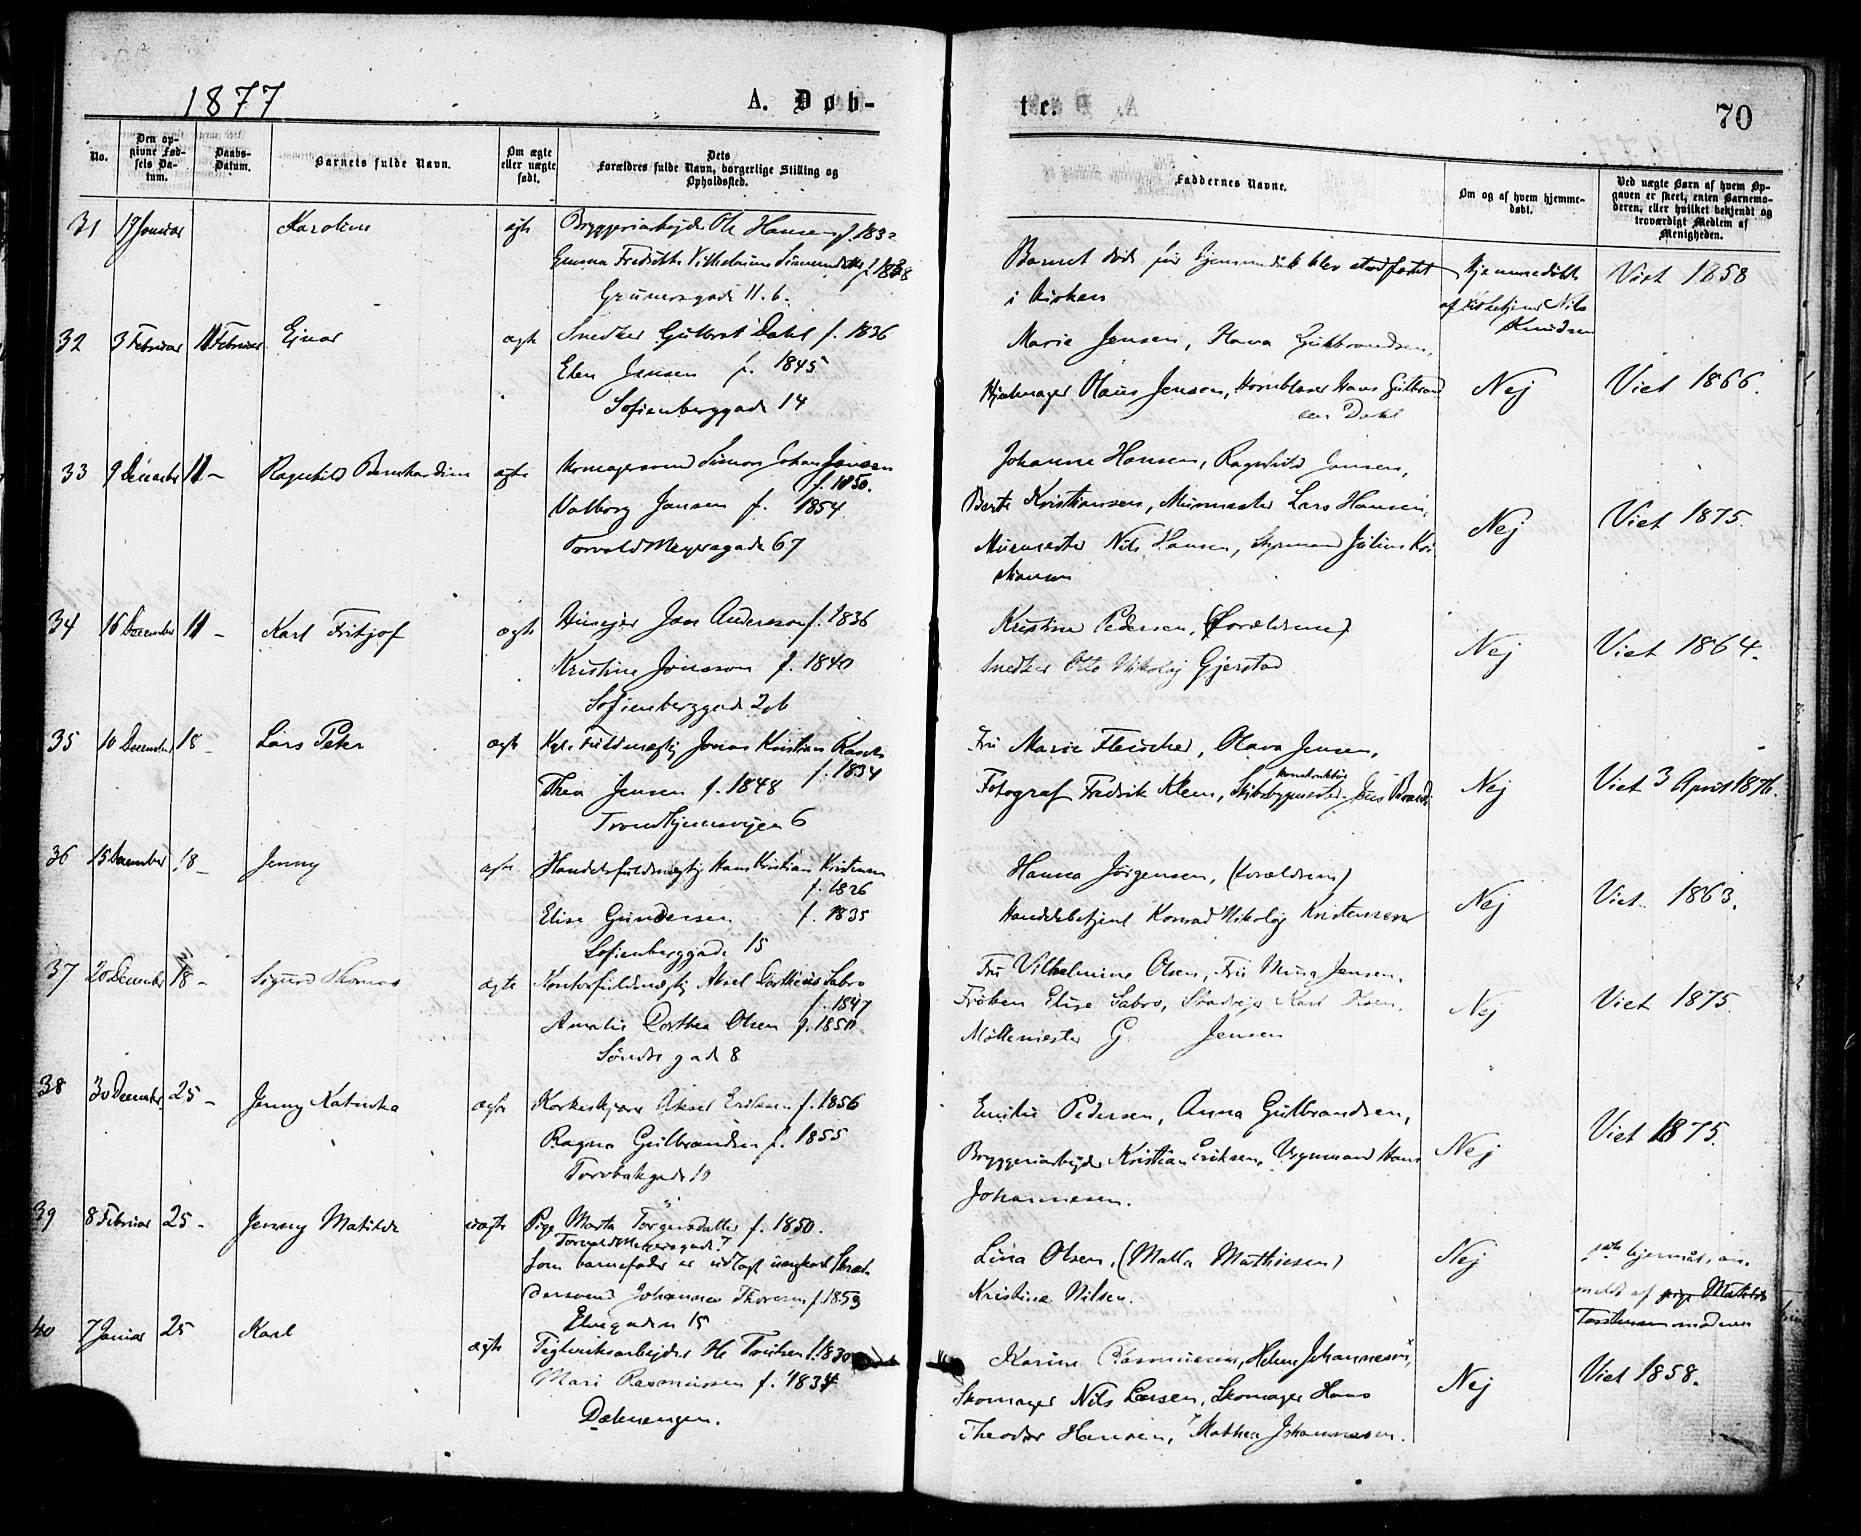 1877
A. Døb-
te.
70
No.
Den op-
givne Fød-
sels Da-
tum.
Daabs-
Datum.
Barnets fulde Navn.
Om ægte
eller uægte
født.
Dets
Forældres fulde Navn, borgerlige Stilling og
Opholdssted.
Faddernes Navne.
Om og af hvem hjemme-
døbt.
Ved uægte Børn af hvem Op-
gaven er skeet, enten Barnemo-
deren, eller hvilket bekjendt og
troværdigt Medlem af
Menigheden.
31 17 Januar Karoline ægte Bryggeriarbejder Ole Hansen f. 1832
Emma Fredrikke Vilhelmine f. 1838
Grünersgade 11. b.
Barnet døde før hjemmedåb blev stadfæstet
i kirken
hjemmedøbt
af kirketjener Nils
Knudsen
Viet 1858
32 3 Februar 11 Februar Ejnar ægte Snedker Gulbrat Dahl f. 1836
Elen Jensen f. 1845
Sofienberggade 14
Marie Jensen, Hana Gulbrandsen,
Hjulmager Olaus Jensen, Hornblaser Hans Gulbrand
sen Dahl
Nej
Viet 1866
33 9 December 11 – Ragnhild Bernhardine ægte Simon Johan Jansen
f. 1850.
Valborg Jansen f. 1854
Torvald Meyersgade 67
Johanne Hansen, Ragnhild Jansen,
Berte Kristiansen, Murmester Lars Hansen,
Murmester Nils Hansen, Styrmand Julius Kri
stiansen
Nej
Viet 1875.
34 16 December 11 – Karl Fritjof ægte Husejer Jon Andersson f. 1836
Kristine Jönsson f. 1840
Sofienberggade 26
Kristine Pedersen, (Forældrene)
Snedker Otto Nikolaj Gjerstad
Nej
Viet 1864.
35 10 December 18 – Lars Peter ægte Kgl. Fuldmægtig Jonas Kristian Rasch
f. 1834
Thea Jensen f. 1848
Trondhjemsvejen 6
Fru Marie Fleischer, Olava Jensen,
konstruktør
Fotograf Fredrik Klem, Skibsbygmester Jens Brandt
Nej
Viet 3 April 1876.
36 15 December 18 – Jenny ægte Handelsfuldmægtig Hans Kristian Kristensen
f. 1826
Elise Gundersen f. 1835
Sofienberggade 15
Hanna Jørgensen, (Forældrene)
Handelsbetjent Konrad Nikolaj Kristensen
Nej
Viet 1863.
37 20 December 18 – Sigurd Thomas ægte Kontorfuldmægtig Aksel Sabro
f. 1847
Amalie Dorthea Olsen f. 1850.
Søndre gade 8
Fru Vilhelmine Olsen, Fru Mina Jensen,
Frøken Elise Sabro, Karl Olsen,
Møllemester G Jensen
Nej
Viet 1875.
38 30 December 25 – Jenny Katinka ægte Korkeskjærer Aksel Eriksen f. 1856
Ragna Gulbrandsen f. 1855
Torvbakgade 10
Emilie Pedersen, Anna Gulbrandsen,
Bryggeriarbejder Kristian Eriksen, Vognmand Hans
Johannesen.
Nej
Viet 1875.
39 8 Februar 25 – Jenny Matilde uægte Pige Marta Torgersdatter f. 1850.
Torvald Meyersgade 7
Som barnefader er udlagt ungkarl Skræd-
dersvend Johannes Thoresen f. 1853
Elvegaden 15
Lina Olsen, (Malla Mathiesen)
Kristine Nilsen.
Nej
lejermål, an-
meldt af pige Matilde
Torstensen moderen
40 7 Januar 25 Karl ægte Teglverksarbejder Ole f. 1830
Mari Rasmussen f. 1834
Dælenengen.
Karine Rasmussen, Helene Johannesen,
Skomager Nils Larsen, Skomager Hans
Theodor Hansen, Mathea Johannesen.
Nej
Viet 1858.